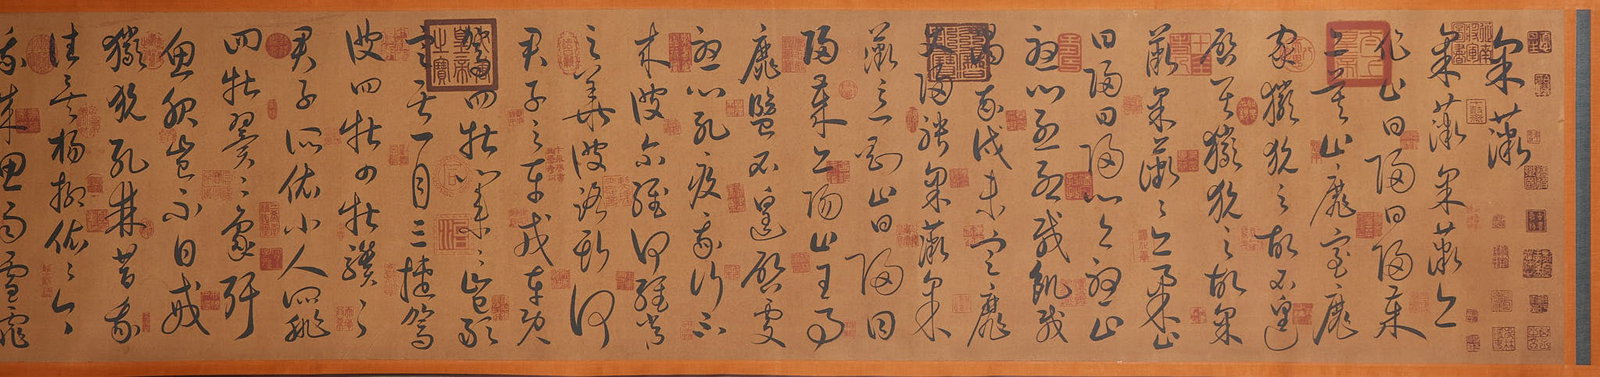 采薇
采薇采薇〻亦
作止曰歸曰歸歲
亦莫止靡室靡
家玁狁之故不遑
啟居玁狁之故采
薇采薇〻亦柔止
曰歸曰歸心亦憂止
憂心烈烈載飢載
渴我戍未定靡
使歸聘采薇采
薇〻亦剛止曰歸曰
歸歲亦陽止王事
靡盬不遑啟處
憂心孔疚我行不
來彼爾維何維常
之華彼路斯何
君子之車戎車既
駕四牡業〻豈敢
定居一月三捷駕
彼四牡四牡騤〻
君子所依小人所腓
四牡翼〻象弭
魚服豈不日戒
玁狁孔棘昔我
往矣楊柳依〻今
我來思雨雪霏